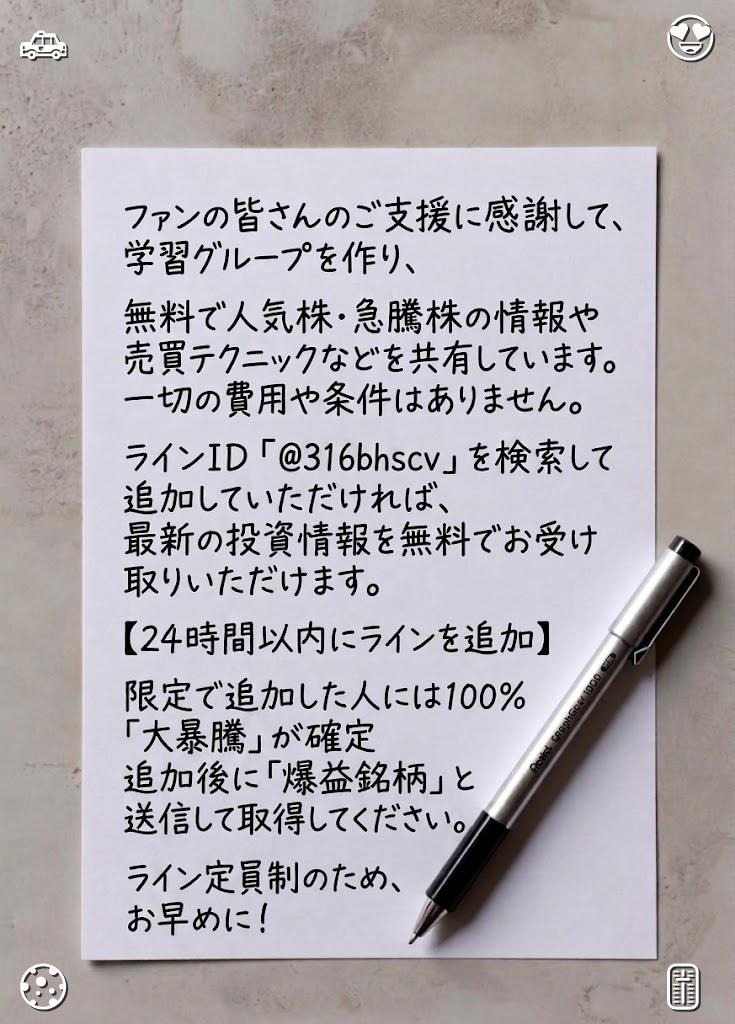 ファンの皆さんのご支援に感謝して、
学習グループを作り、
無料で人気株・急騰株の情報や
売買テクニックなどを共有しています。
一切の費用や条件はありません。
ラインID「@316bhscv」を検索して
追加していただければ、
最新の投資情報を無料でお受け
取りいただけます。
【24時間以内にラインを追加】
限定で追加した人には100%
「大暴騰」が確定
追加後に「爆益銘柄」と
送信して取得してください。
ライン定員制のため、
お早めに!